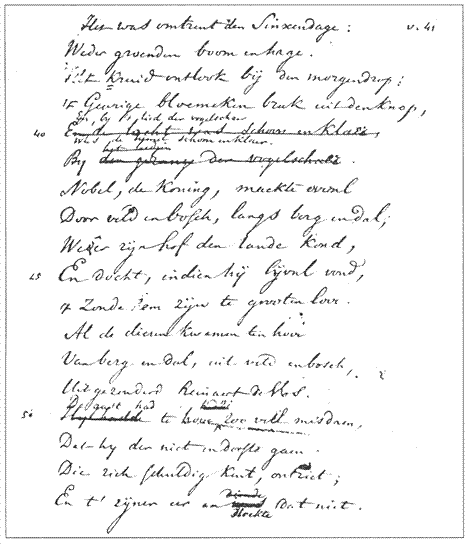 Het was omtrent den Sinxendage: v. 41
Weder groenden boom en hage.
Het Kruid ontlook bij den morgendrop;
't Geurige bloemeken brak uit den knop,
En, by 't lied der vogelschaer
40 En de lucht was schoon en klaer,
Was de hemel schoon en klaer.
By den gezang der vogelschaer.
Nobel, de Koning, maekte overal
Door veld en bosch, langs berg en dal,
Weêr zijn hof den lande kond,
45 En docht, indien hij bijval vond,
't Zonde hem zijn te grooten love.
Al de dieren kwamen ten hove
Van berg en dal, uit veld en bosch,
Uitgezonderd Reinaert de Vos.
De guit had
50 te zoo veel misdaen,
Dat hy der niet en dorfte gaen.
Die zich schuldig kent, ontziet;
En t' zijner eer en Strekte dat niet.